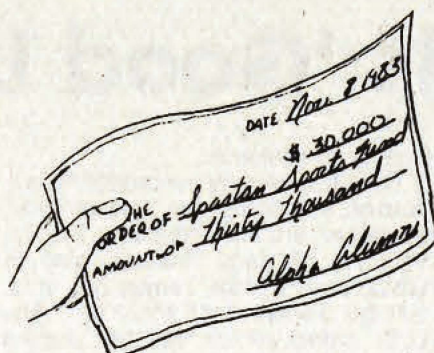 DATE Nov. 8 1983
$ 30,000
THE
ORDER OF Spartan Sports Fund
AMOUNT OF Thirty Thousand
Alpha Alumni